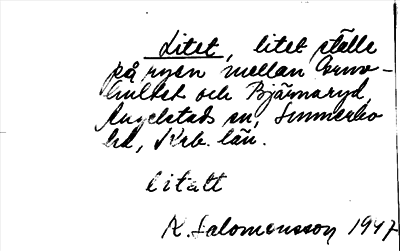 Litet, litet ställe
på rysn mellan Ormo-
hultet och Bjärnaryd,
Angelstads sn, Sunnerbo
hd, Krb. län.
litatt
K. Salomonsson 1947